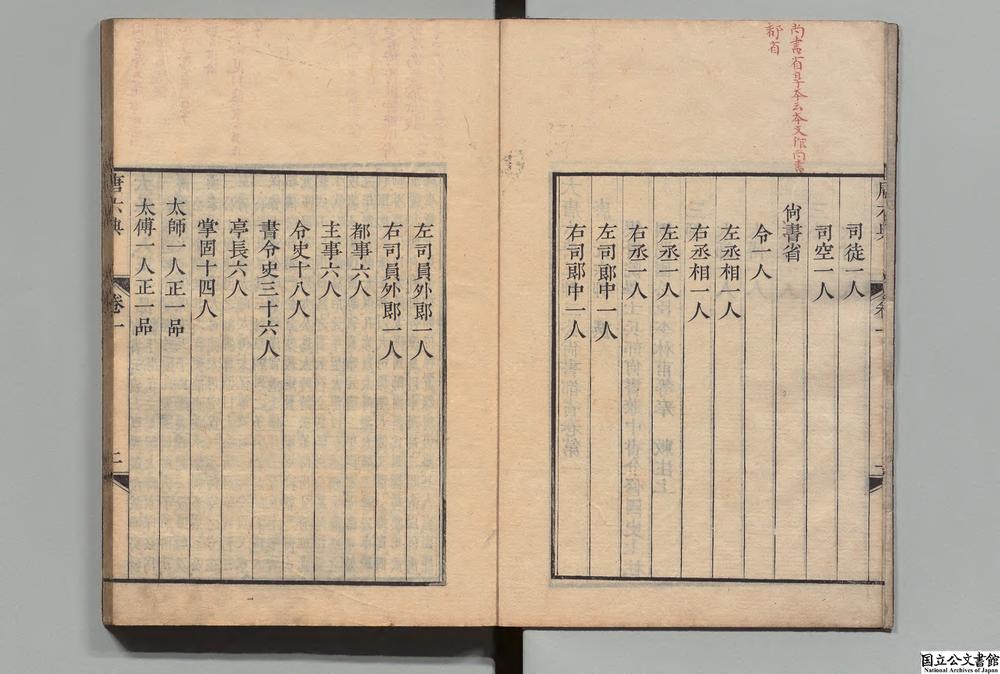 尚書省
都省
司徒一人
司空一人
尙書省
令一人
左丞相一人
右丞相一人
左丞一人
右丞一人
左司郞中一人
右司郞中一人
左司員外郞一人
右司員外郞一人
都事六人
主事六人
令史十八人
書令史三十六人
亭長六人
掌固十四人
太師一人正一品
太傅一人正一品
唐六典
卷一
二
国立公文書館
National Archives of Japan